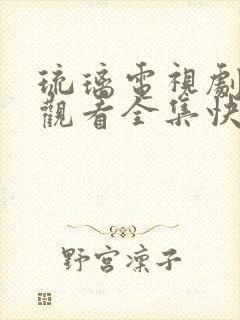 琉璃電視劇
觀看全集快
野宮凜子